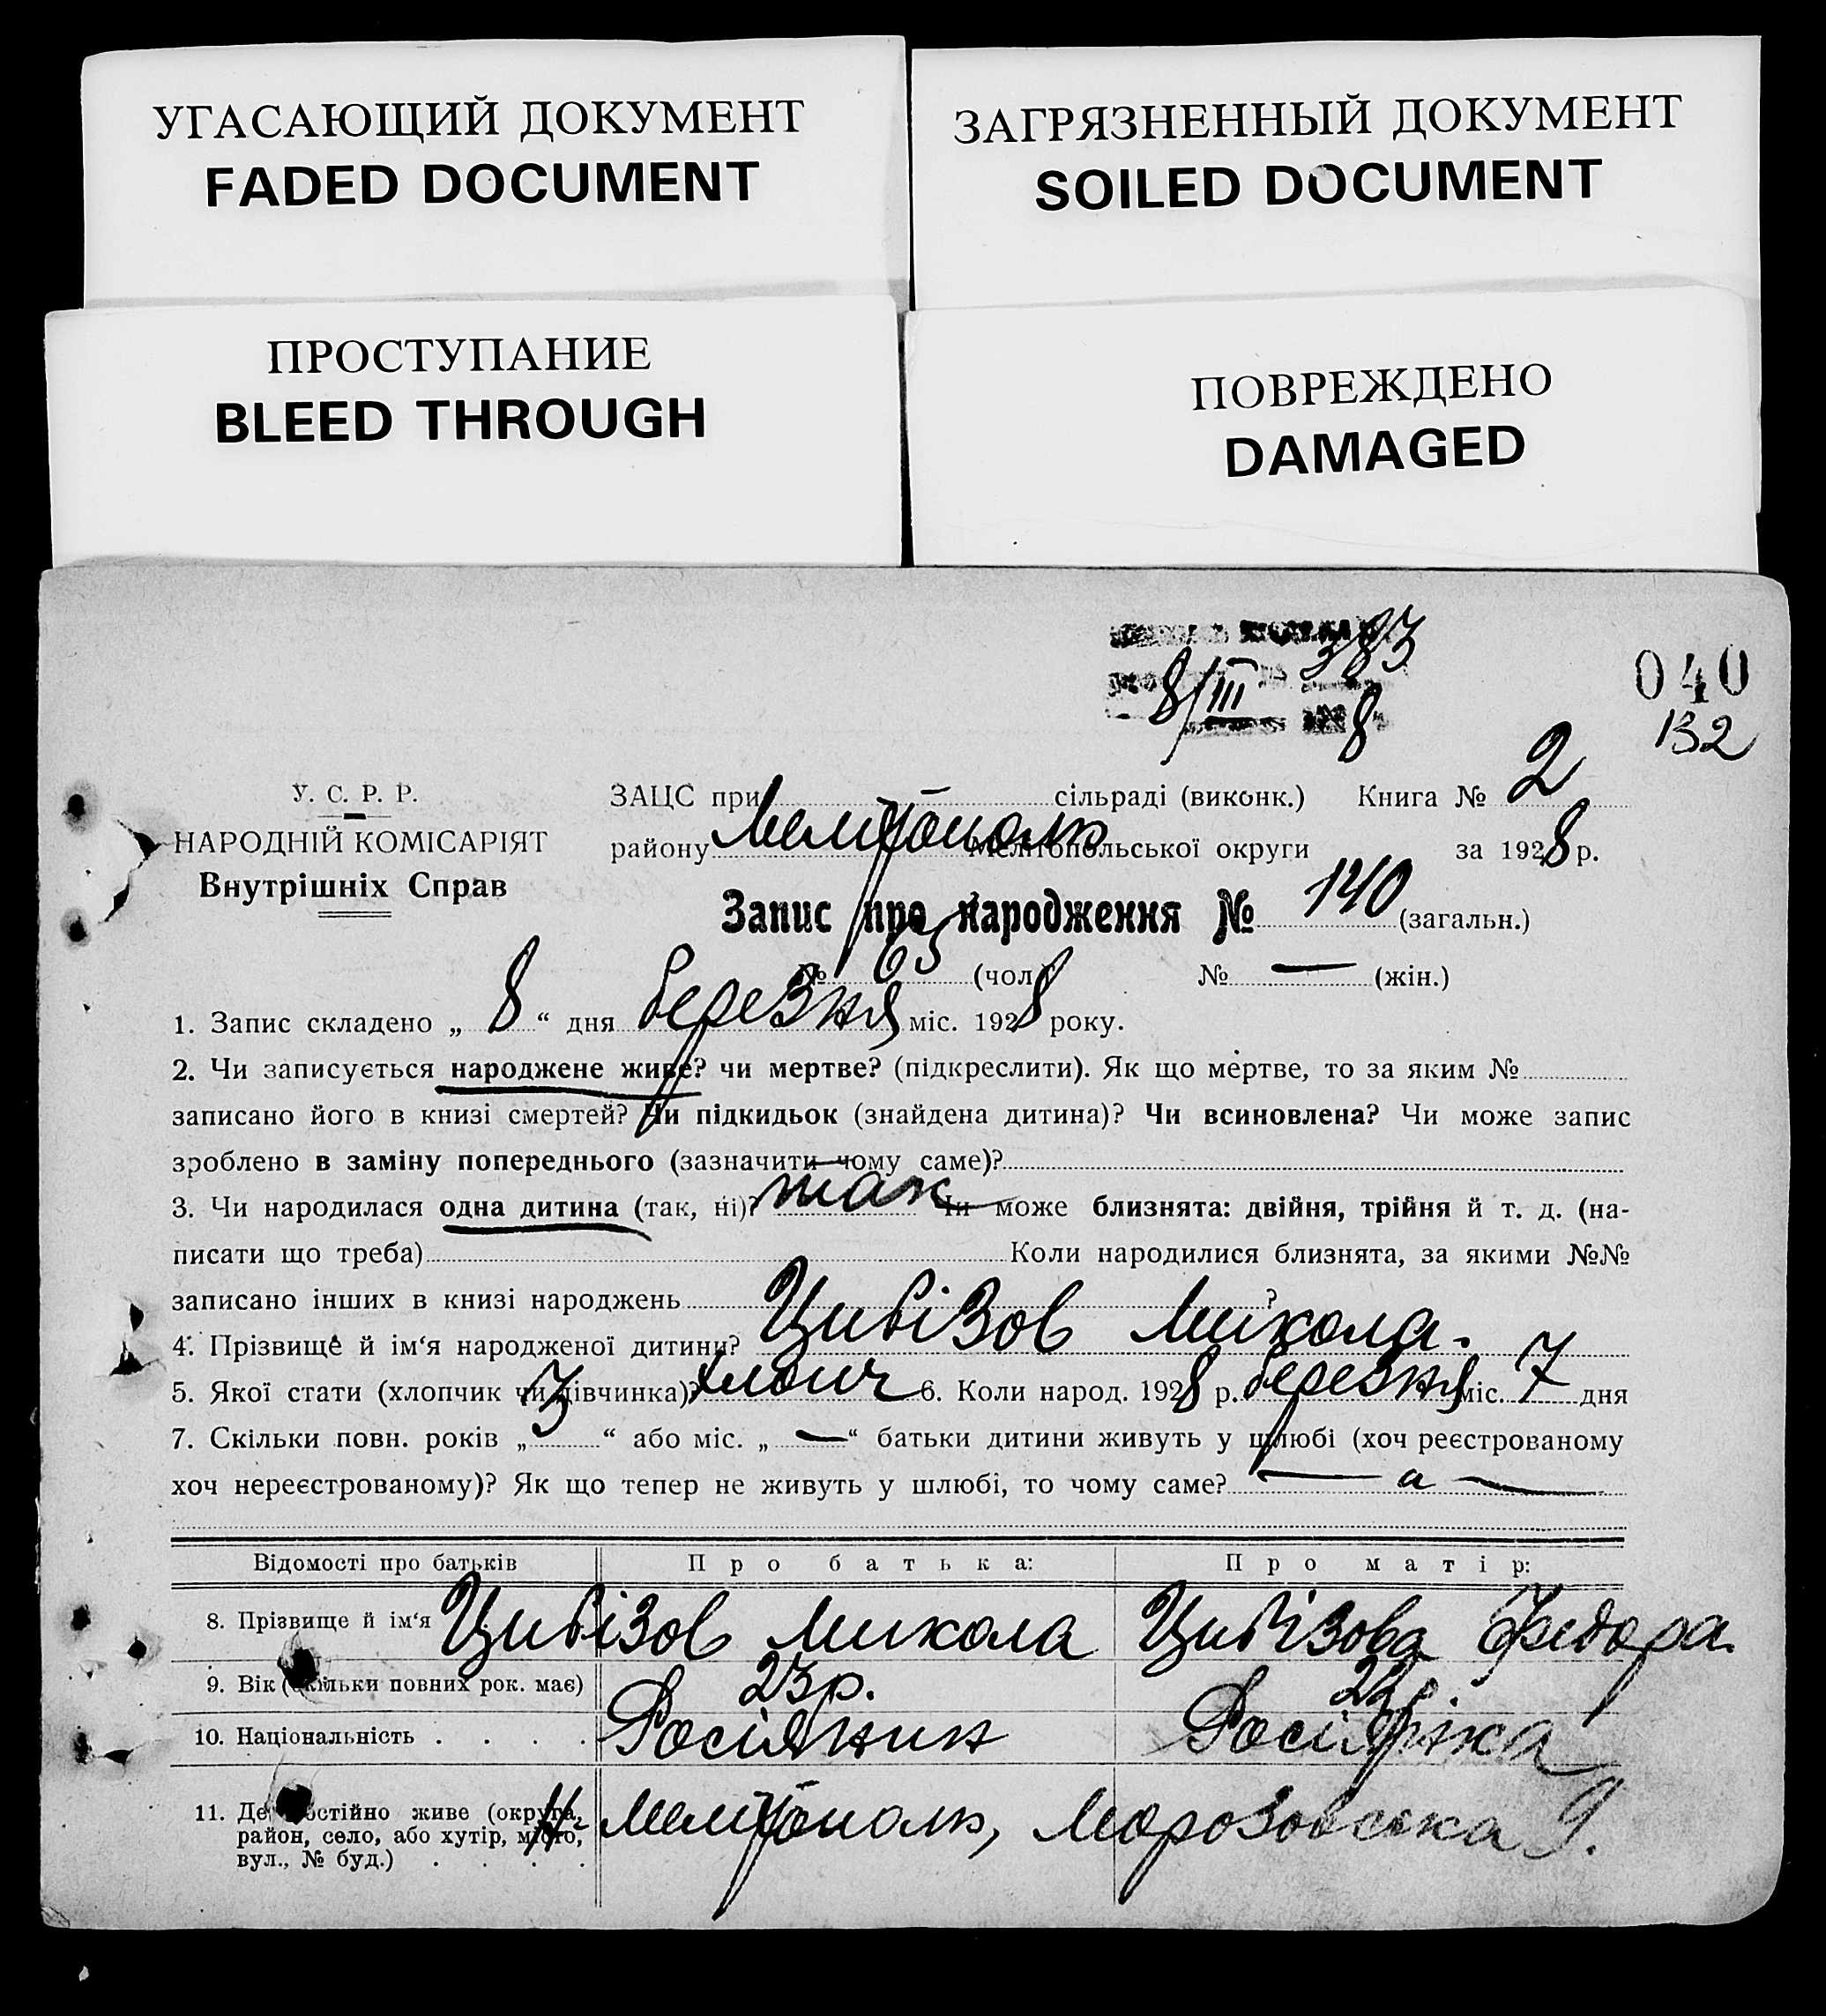 УГАСАЮЩИЙ ДОКУМЕНТ
FADED DOCUMENT
ЗАГРЯЗНЕННЫЙ ДОКУМЕНТ
SOILED DOCUMENT
ПРОСТУПАНИЕ
BLEED THROUGH
ПОВРЕЖДЕНО
DAMAGED
383
8/III 8
040
132
У. С. Р. Р.
НАРОДНІЙ КОМІСАРІЯТ
Внутрішніх Справ
ЗАЦС при сільраді (виконк.) Книга № 2
району Мелітополь Мелітопольської округи за 1928 р.
Запис про народження № 140 (загальн.)
№ 65 (чол.) № — (жін.)
1. Запис складено „ 8 “ дня березня міс. 1928 року.
2. Чи записується народжене живе? чи мертве? (підкреслити). Як що мертве, то за яким №
записано його в книзі смертей? Чи підкидьок (знайдена дитина)? Чи всиновлена? Чи може запис
зроблено в заміну попереднього (зазначити чому саме)?
3. Чи народилася одна дитина (так, ні)? так Чи може близнята: двійня, трійня й т. д. (на-
писати що треба) Коли народилися близнята, за якими №№
записано інших в книзі народжень ?
4. Прізвище й ім‘я народженої дитини? Цибізов Микола.
5. Якої стати (хлопчик чи дівчинка)? хлопч 6. Коли народ. 1928 р. березня міс. 7 дня
7. Скільки повн. років „ 3 “ або міс. „ — “ батьки дитини живуть у шлюбі (хоч реєстрованому
хоч нереєстрованому)? Як що тепер не живуть у шлюбі, то чому саме?
Відомості про батьків Про батька: Про матір:
8. Прізвище й ім‘я Цибізов Микола Цибізова Федора
9. Вік (скільки повних рок. має) 23 р. 22 р.
10. Національність . . . . Росіянин Росіянка
11. Де постійно живе (округа,
район, село, або хутір, місто,
вул., № буд.) . . . .
м. Мелітополь, Морозовська 9.